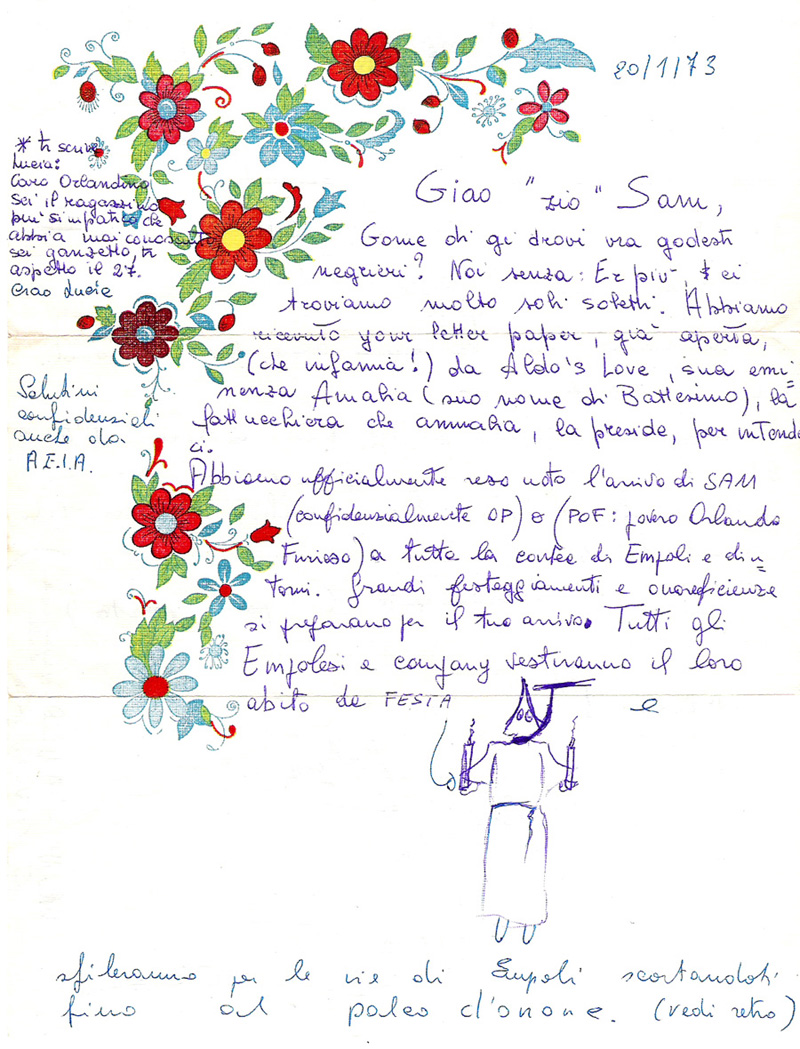 20/1/73
* ti scrive
Lucia:
Caro Orlandino
sei il ragazzino
più simpatico che
abbia mai conosciuto
sei ganzetto, ti
aspetto il 27.
Ciao Lucie
Salutini
confidenziali
anche da
A.E.I.A.
Ciao "zio" Sam,
Come ti gi trovi tra godesti
negrieri? Noi senza: Er più, * ci
troviamo molto soli soletti. Abbiamo
ricevuto your letter paper, già aperta,
(che infamia!) da Aldo's Love, sua emi=
nenza Amalia (suo nome di Battesimo), la
fattucchiera che ammalia, la preside, per intende
ci.
Abbiamo ufficialmente reso noto l'arrivo di SAM
(confidenzialmente OP) e (POF: povero Orlando
Furioso) a tutta la contea di Empoli e din=
torni. Grandi festeggiamenti e onoreficienze
si preparano per il tuo arrivo. Tutti gli
Empolesi e company vestiranno il loro
abito da FESTA e
sfileranno per le vie di Empoli scortandoti
fino al palco d'onore. (vedi retro)